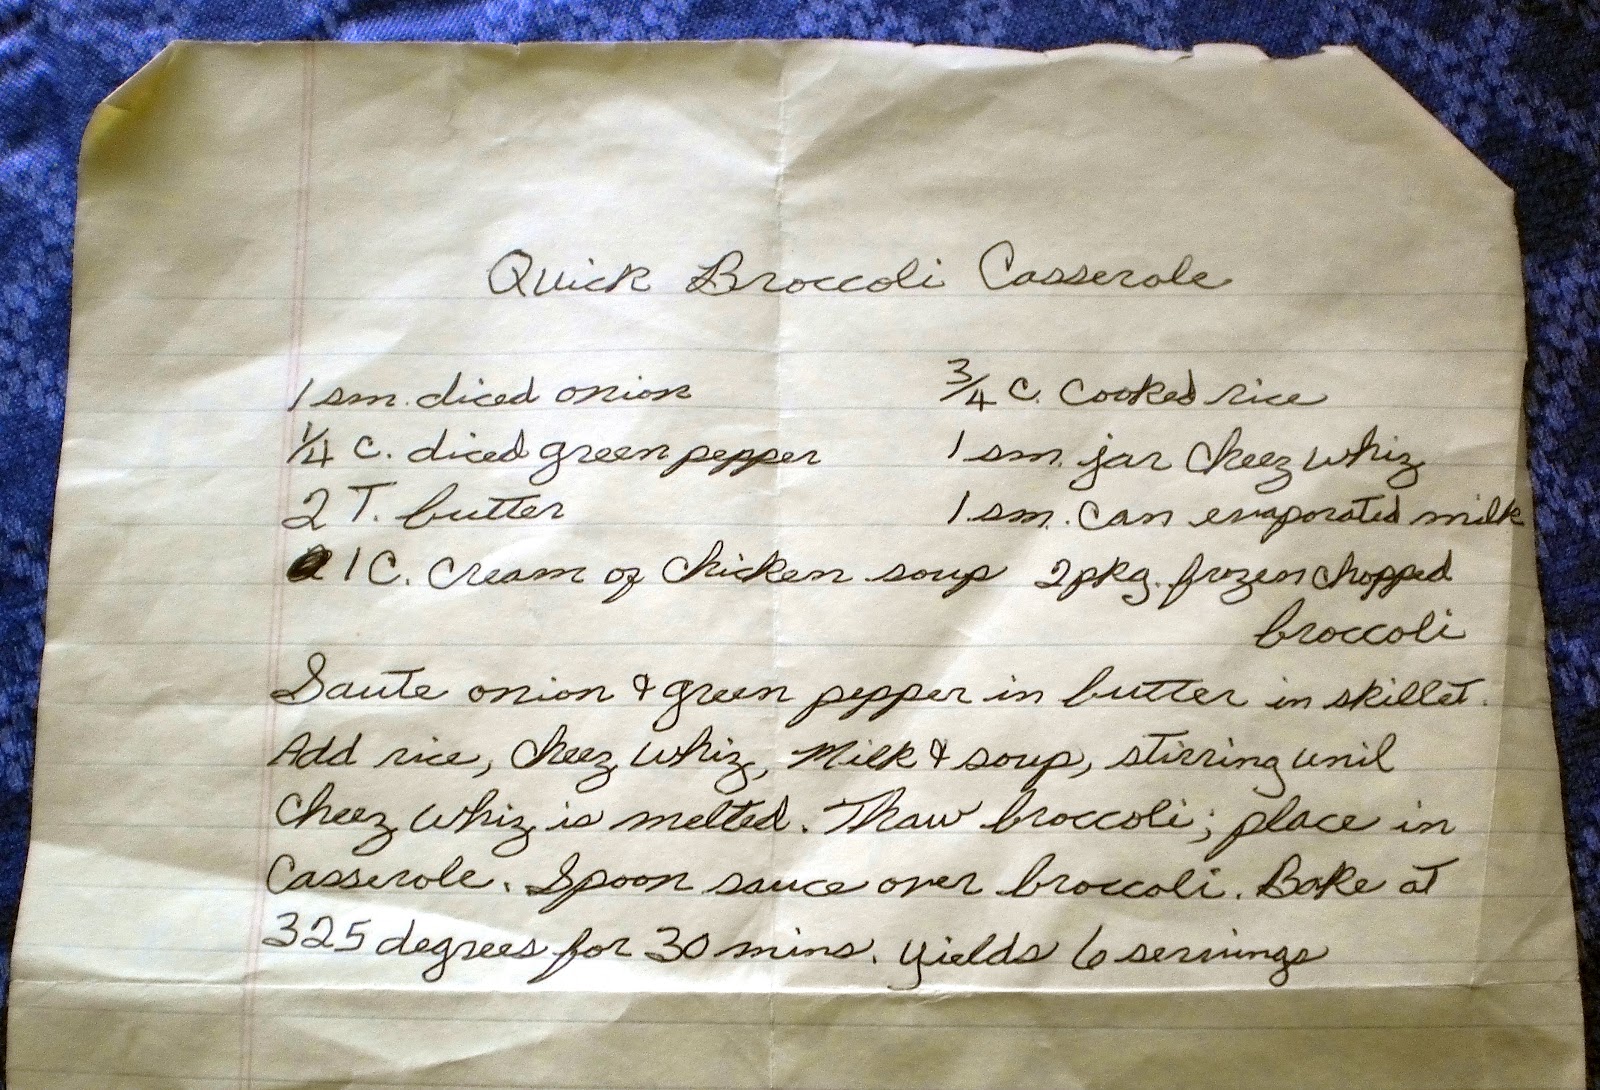 Quick Broccoli Casserole
1 sm. diced onion
1/4 c. diced green pepper
2 T. butter
1 C. cream of chicken soup
3/4 c. cooked rice
1 sm. jar cheez whiz
1 sm. can evaporated milk
2 pkg. frozen chopped
broccoli
Saute onion & green pepper in butter in skillet.
Add rice, cheez whiz, milk & soup, stirring unil
cheez whiz is melted. Thaw broccoli; place in
casserole. Spoon sauce over broccoli. Bake at
325 degrees for 30 mins. yields 6 servings